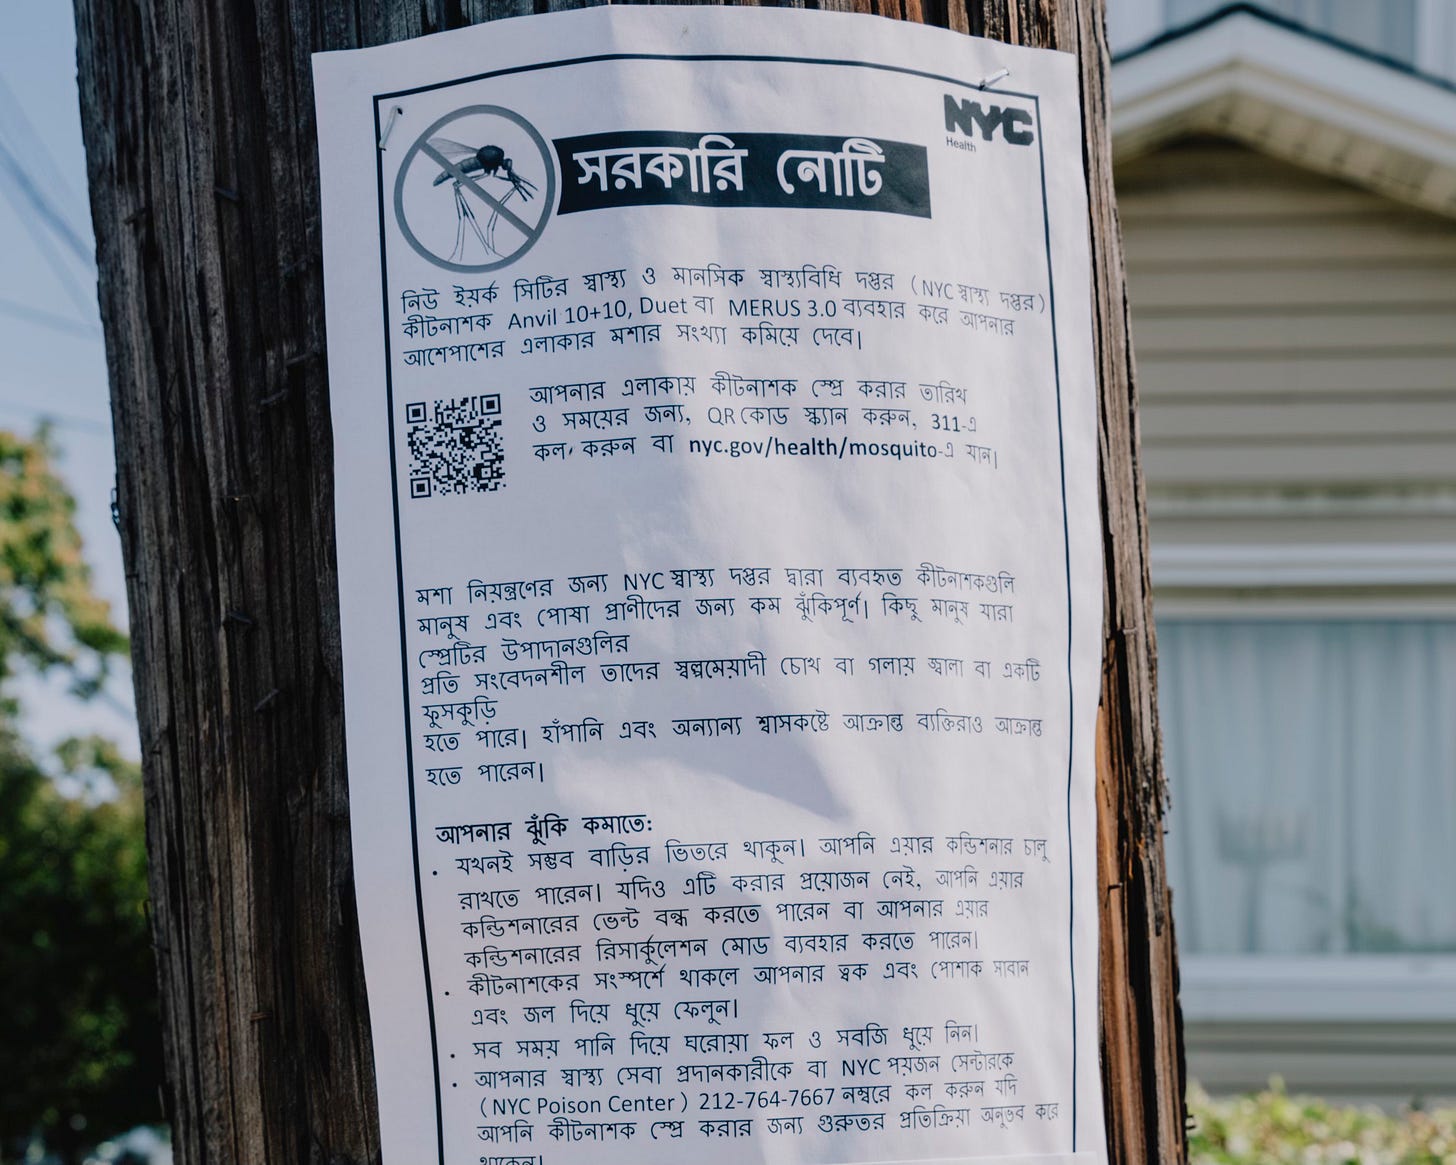 সরকারি নোটি
NYC
Health
নিউ ইয়র্ক সিটির স্বাস্থ্য ও মানসিক স্বাস্থ্যবিধি দপ্তর (NYC স্বাস্থ্য দপ্তর)
কীটনাশক Anvil 10+10, Duet বা MERUS 3.0 ব্যবহার করে আপনার
আশেপাশের এলাকার মশার সংখ্যা কমিয়ে দেবে।
আপনার এলাকায় কীটনাশক স্প্রে করার তারিখ
ও সময়ের জন্য, QR কোড স্ক্যান করুন, 311-এ
কল, করুন বা nyc.gov/health/mosquito-এ যান।
মশা নিয়ন্ত্রণের জন্য NYC স্বাস্থ্য দপ্তর দ্বারা ব্যবহৃত কীটনাশকগুলি
মানুষ এবং পোষা প্রাণীদের জন্য কম ঝুঁকিপূর্ণ। কিছু মানুষ যারা
স্প্রেটির উপাদানগুলির
প্রতি সংবেদনশীল তাদের স্বল্পমেয়াদী চোখ বা গলায় জ্বালা বা একটি
ফুসকুড়ি
হতে পারে। হাঁপানি এবং অন্যান্য শ্বাসকষ্টে আক্রান্ত ব্যক্তিরাও আক্রান্ত
হতে পারেন।
আপনার ঝুঁকি কমাতে:
. যখনই সম্ভব বাড়ির ভিতরে থাকুন। আপনি এয়ার কন্ডিশনার চালু
রাখতে পারেন। যদিও এটি করার প্রয়োজন নেই, আপনি এয়ার
কন্ডিশনারের ভেন্ট বন্ধ করতে পারেন বা আপনার এয়ার
কন্ডিশনারের রিসার্কুলেশন মোড ব্যবহার করতে পারেন।
. কীটনাশকের সংস্পর্শে থাকলে আপনার ত্বক এবং পোশাক সাবান
এবং জল দিয়ে ধুয়ে ফেলুন।
. সব সময় পানি দিয়ে ঘরোয়া ফল ও সবজি ধুয়ে নিন।
. আপনার স্বাস্থ্য সেবা প্রদানকারীকে বা NYC পয়জন সেন্টারকে
(NYC Poison Center) 212-764-7667 নম্বরে কল করুন যদি
আপনি কীটনাশক স্প্রে করার জন্য গুরুতর প্রতিক্রিয়া অনুভব করে
থাকেন।